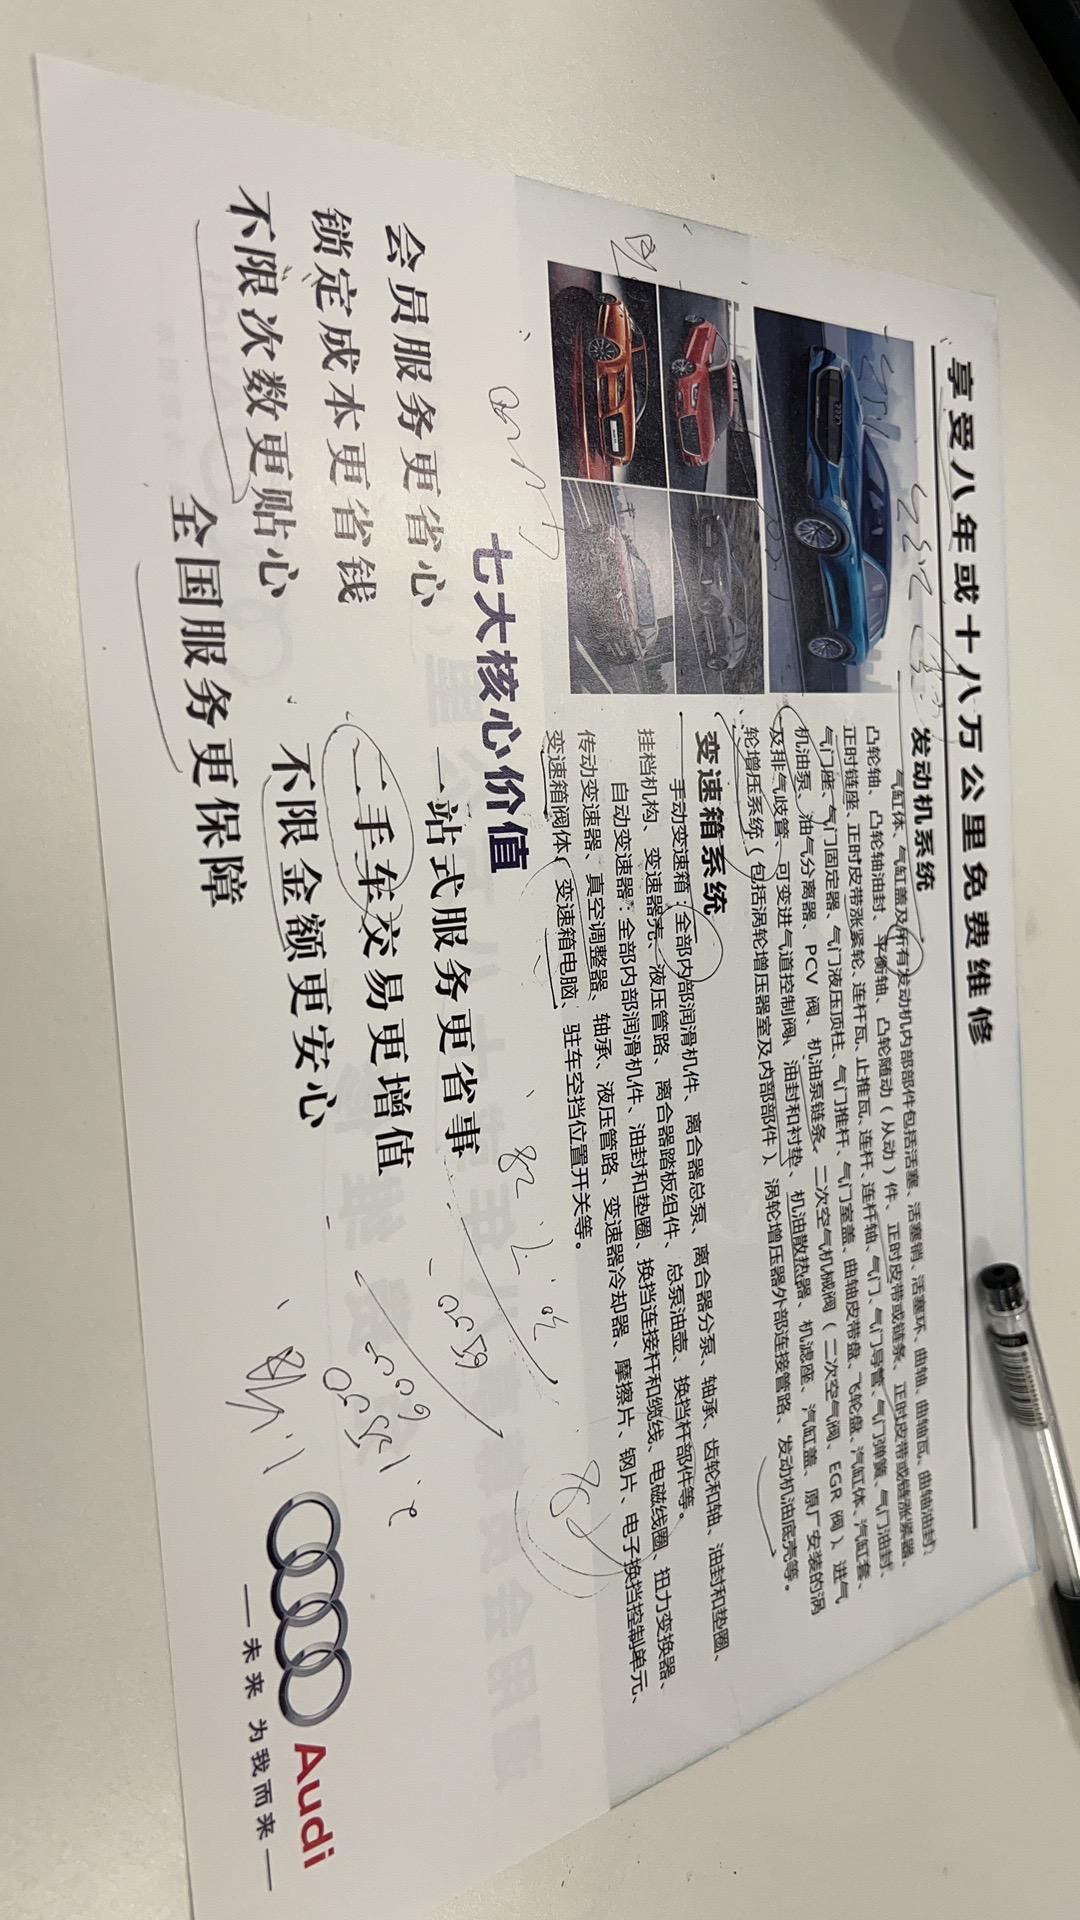 享受八年或十八万公里免费维修
发动机系统
气缸体、气缸盖及所有发动机内部部件包括活塞、活塞销、活塞环、曲轴、曲轴瓦、曲轴油封、
凸轮轴、凸轮轴油封、平衡轴、凸轮随动（从动）件、正时皮带或链条、正时皮带或链涨紧器、
正时链座、正时皮带涨紧轮、连杆瓦、止推瓦、连杆、连杆轴、气门、气门导管、气门弹簧、气门油封、
气门座、气门固定器、气门液压顶柱、气门推杆、气门室盖、曲轴皮带盘、飞轮盘、汽缸体、汽缸套、
机油泵、油气分离器、PCV 阀、机油泵链条、二次空气机械阀（二次空气阀、EGR 阀）、进气
及排气歧管、可变进气道控制阀、油封和衬垫、机油散热器、机滤座、汽缸盖、原厂安装的涡
轮增压系统（包括涡轮增压器室及内部部件）、涡轮增压器外部连接管路、发动机油底壳等。
变速箱系统
手动变速箱：全部内部润滑机件、离合器总泵、离合器分泵、轴承、齿轮和轴、油封和垫圈、
挂档机构、变速器壳、液压管路、离合器踏板组件、总泵油壶、换挡杆部件等。
自动变速器：全部内部润滑机件、油封和垫圈、换挡连接杆和缆线、电磁线圈、扭力变换器、
传动变速器、真空调整器、轴承、液压管路、变速器冷却器、摩擦片、钢片、电子换挡控制单元、
变速箱阀体、变速箱电脑、驻车空挡位置开关等。
七大核心价值
会员服务更省心
一站式服务更省事
锁定成本更省钱
二手车交易更增值
不限次数更贴心
不限金额更安心
全国服务更保障
Audi
未来 为我而来